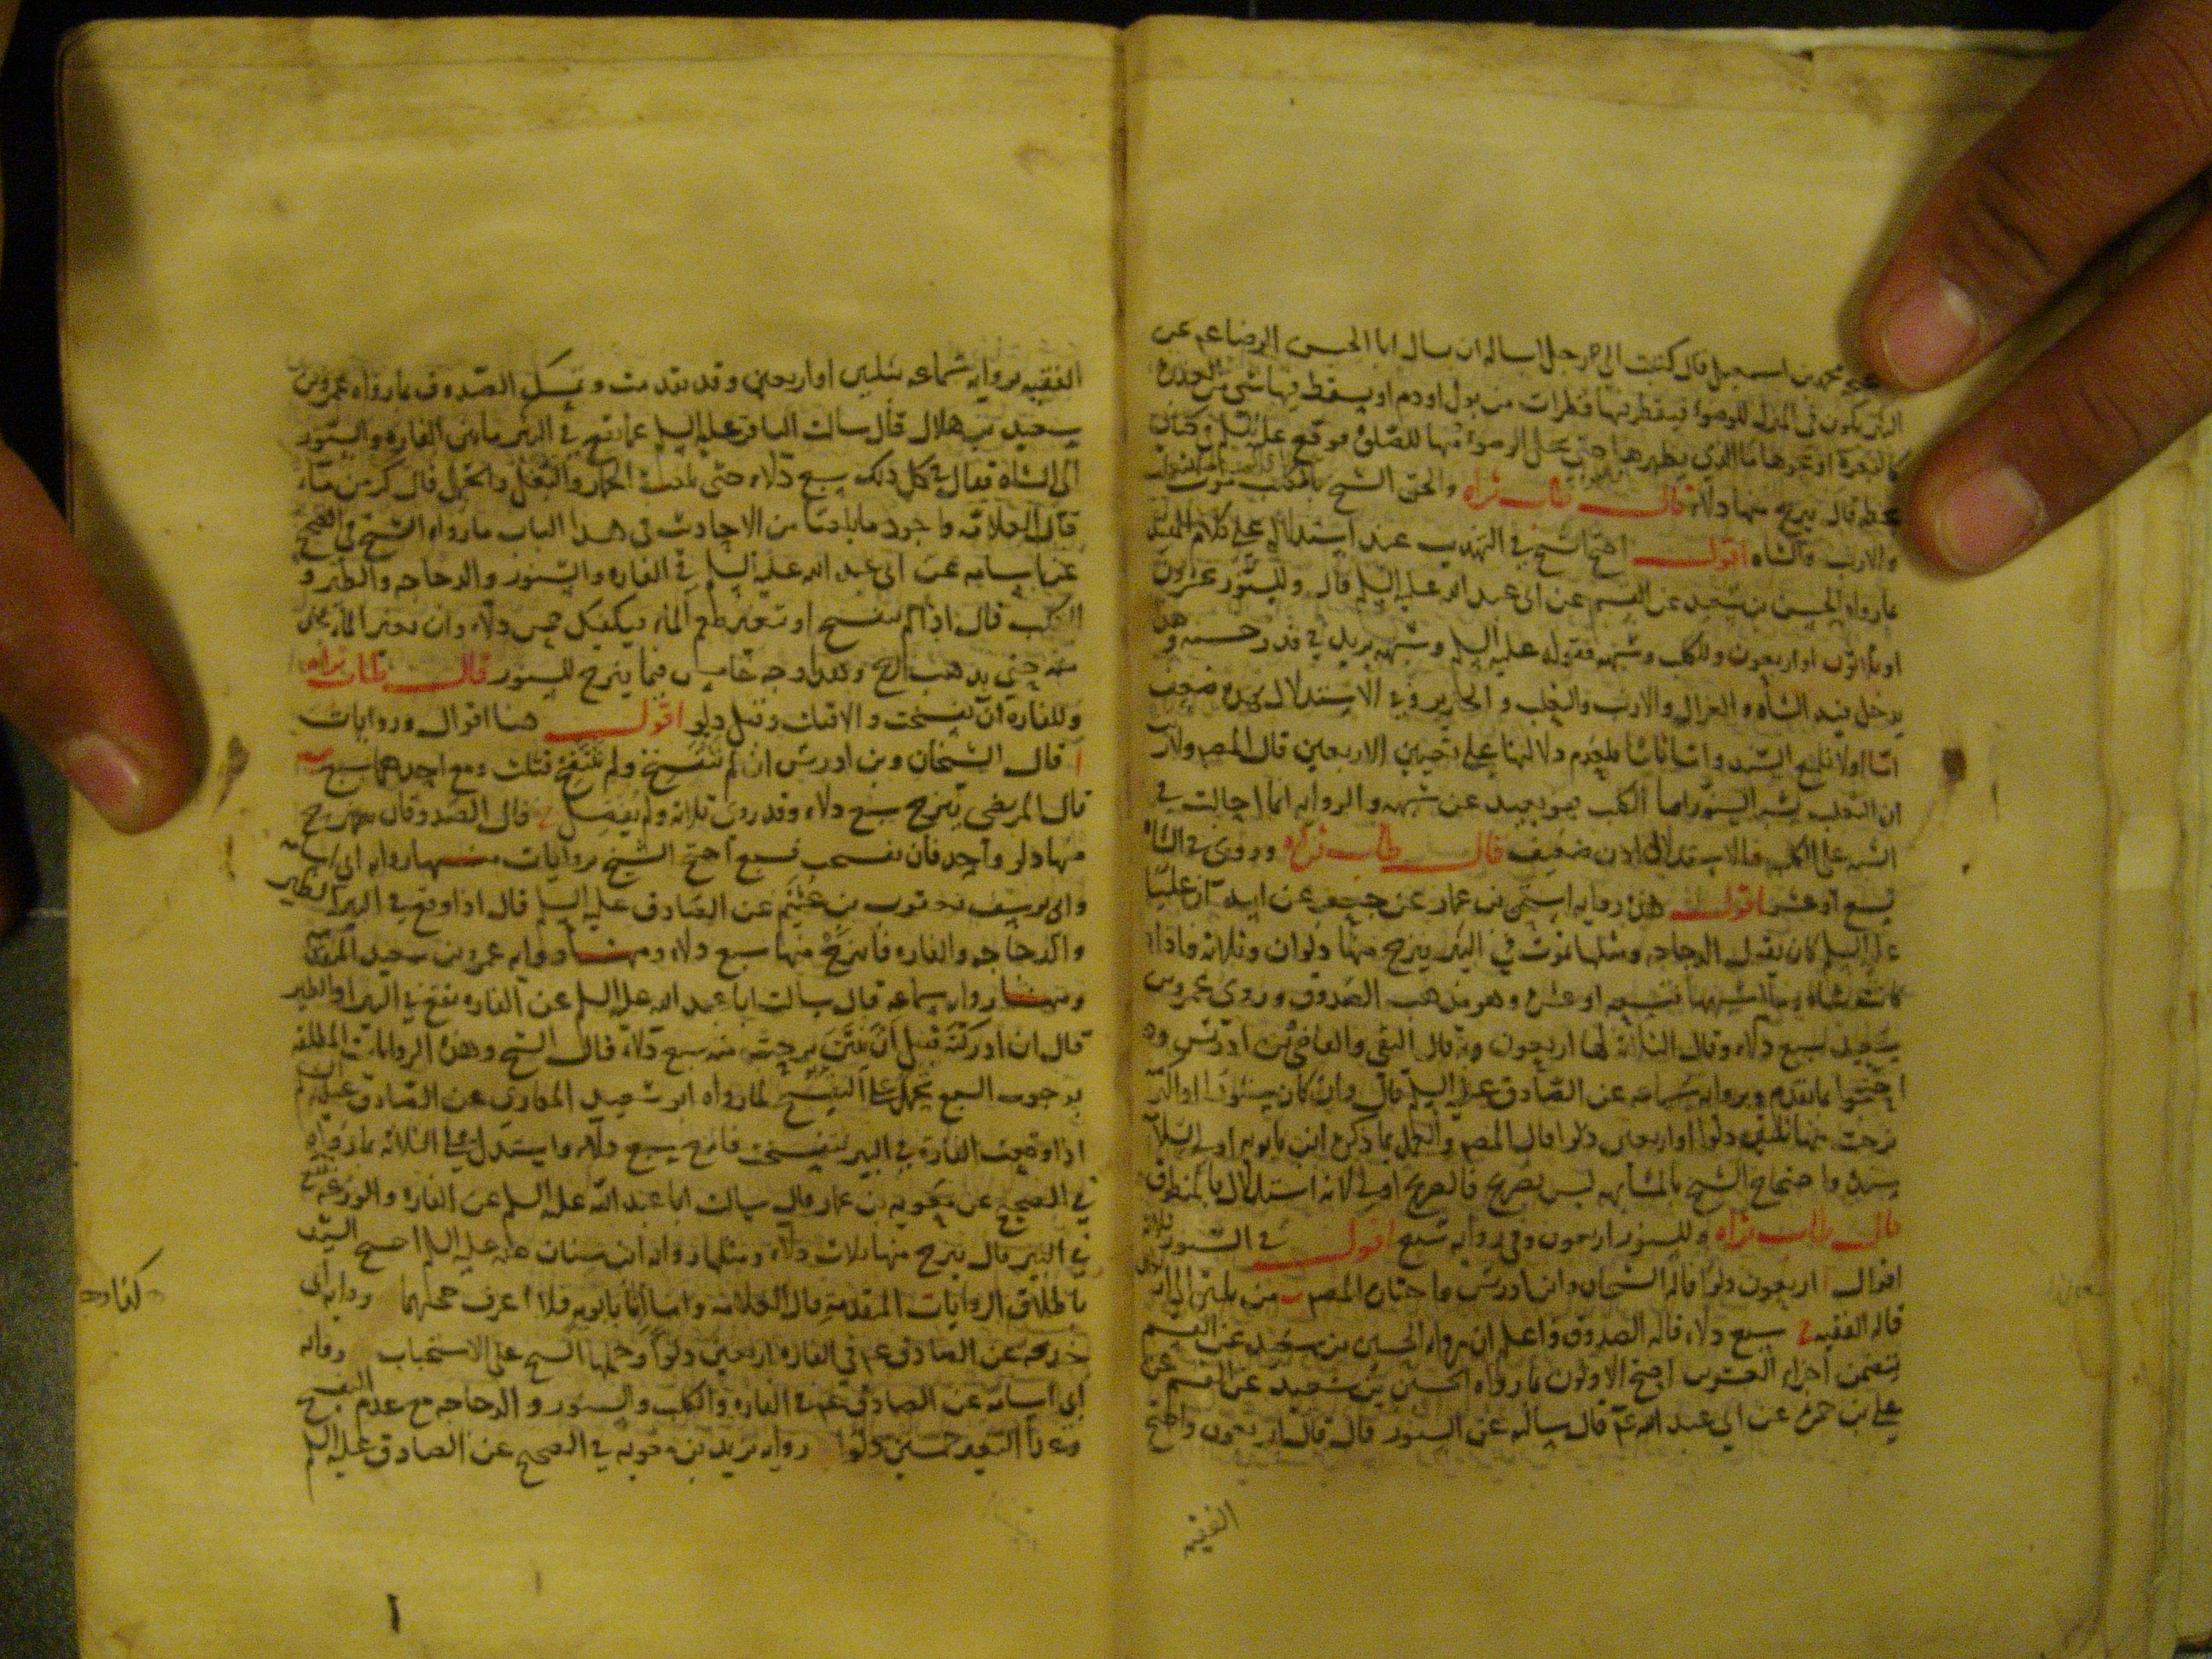 محمد بن اسمعيل قال كتبت الى رجل اساله ان يسال ابا الحسن الرضا عم عن
البئر يكون في المنزل للوضوء فيقطر فيها قطرات من بول او دم او يسقط فيها شي من العذرة
كالبعرة او نحوها ما الذي يطهرها حتى يحل الوضوء منها للصلوة فوقع عليه السلم في كتابي
بخطه قال ينزح منها دلاء قال طاب ثراه والحق الشيخ بالكلب موت
والارنب والشاه اقول احتج الشيخ في التهذيب عند استدلاله على كلام المفيد
بما رواه الحسين بن سعيد عن القسم عن ابى عبد الله عليه السلم قال وللسنور عشرون
او ثلاثون او اربعون وللكلب وشبهه فقوله عليه السلم وشبهه يريد في قدر جسمه وهذا
يدخل فيه الشاه والغزال والارنب والثعلب والخنزير وفي الاستدلال بهذه ضعف
اما اولا السند واما ثانيا فلعدم دلالتها على تعيين الاربعين قال المصم ولان
ان الثعلب يشبه السنور اما الكلب فهو بعيد عن شبهه والرواية انما احالت في
الشبه على الكلب فالاستدلال اذن ضعيف قال طاب ثراه وروي في الشاه
تسع او عشر اقول هذه رواية اسحق بن عمار عن جعفر عن ابيه ان عليا
عليه السلم كان يقول الدجاجه ومثلها تموت في البئر ينزح منها دلوان وثلاثه فاذا
كانت شاه وما اشبهها فتسعه او عشرة وهو مذهب الصدوق وروي عمرو بن
سعيد سبع دلاء وقال الثلاثة لها اربعون وبه قال التقي والقاضي وبن ادريس
احتجوا بما تقدم وبروايه سماعه عن الصادق عليه السلم قال وان كان سنورا او اكبر
نزحت منها ثلثين دلوا او اربعين دلوا قال المصم والعمل بما ذكره ابن بابويه اولى
واحتجاج الشيخ بالمشابهه ليس بصريح فالصريح اولى لانه استدلال بالمنطوق
قال طاب ثراه وللسنور اربعون وفي رواية سبع اقول في السنور ثلاثة
اقوال ا اربعون دلوا قاله الشيخان وابن ادريس واختاره المصم ب من ثلثين الى
قاله الفقيه ج سبع دلاء قاله الصدوق واعلم ان رواية الحسين بن سعيد عن القسم
تتضمن اجزاء العشرين احتج الاولون بما رواه الحسين بن سعيد عن القسم عن
علي بن حمزة عن ابي عبد الله عم قال سالته عن السنور قال قال اربعون واحتج
الفقيه
الفقيه بروايه سماعه ثلثين او اربعين وقد تقدمت وتمسك الصدوق بما رواه عمرو بن
سعيد بن هلال قال سالت الباقر عليه السلم عما يقع في البئر ما بين الفاره والسنور
الى الشاه فقال في كل ذلك سبع دلاء حتى بلغت الحمار والبغل والجمل قال كر من ماء
قال العلامه واجود ما بلغنا من الاحاديث في هذا الباب ما رواه الشيخ في الصحيح
عن ابى اسامه عن ابى عبد الله عليه السلم في الفاره والسنور والدجاجه والطير و
الكلب قال اذا لم يتفسخ او يتغير طعم الماء فيكفيك خمس دلاء وان تغير الماء فخذ
منه حتى يذهب الريح وهذا وجه خامس فيما ينزح للسنور قال طاب ثراه
وللفاره ان تفسخت والا فثلث وقيل دلو اقول هنا اقوال وروايات
ا قال الشيخان وبن ادريس ان لم تتفسخ ولم تنتفخ فثلث ومع احدهما سبع ب
قال المرتضى ينزح سبع دلاء وقد روى ثلاثة ولم يفصل ج قال الصدوقان ينزح
منها دلو واحد فان تفسخت فسبع احتج الشيخ بروايات منها رواية ابى اسامة
وابى يوسف يعقوب بن عثيم عن الصادق عليه السلم قال اذا وقع في البئر الطير
والدجاجه والفاره فانزح منها سبع دلاء ومنها رواية عمرو بن سعيد المتقدمة
ومنها رواية سماعه قال سالت ابا عبد الله عليه السلم عن الفاره تقع في البئر او الطير
قال ان ادركته قبل ان ينتن نزحت منه سبع دلاء قال الشيخ وهذه الروايات المطلقه
بوجوب السبع تحمل على التفسخ لما رواه ابو سعيد المكاري عن الصادق عليه السلم
اذا وقعت الفارة في البئر فتفسخت فانزح سبع دلاء واستدل على الثلاثه بما رواه
في الصحيح عن معويه بن عمار قال سالت ابا عبد الله عليه السلم عن الفاره والوزغه تقع
في البئر قال ينزح منها ثلاث دلاء ومثلها رواية ابن سنان عنه عليه السلم احتج السيد
باطلاق الروايات المتقدمة قال العلامه واما ابنا بابويه فلا اعرف حجتهما ورواية ابى
خديجه عن الصادق عم في الفاره اربعين دلوا وحملها الشيخ على الاستحباب ورواية
ابى اسامه عن الصادق عم في الفاره والكلب والسنور والدجاجه مع عدم التفسخ
وعدم التغير خمسين دلوا رواية يزيد بن معويه في الصحيح عن الصادق عليه السلم